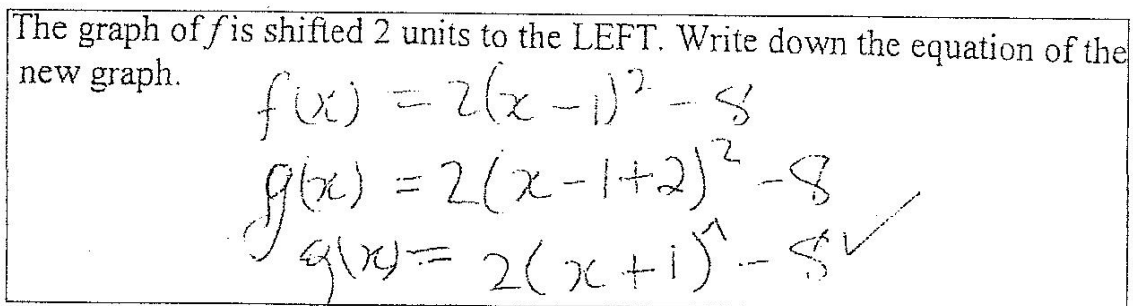 The graph of f is shifted 2 units to the LEFT. Write down the equation of the
new graph.
f(x) = 2(x - 1)² - 8
g(x) = 2(x - 1 + 2)² - 8
g(x) = 2(x + 1)² - 8 ✓